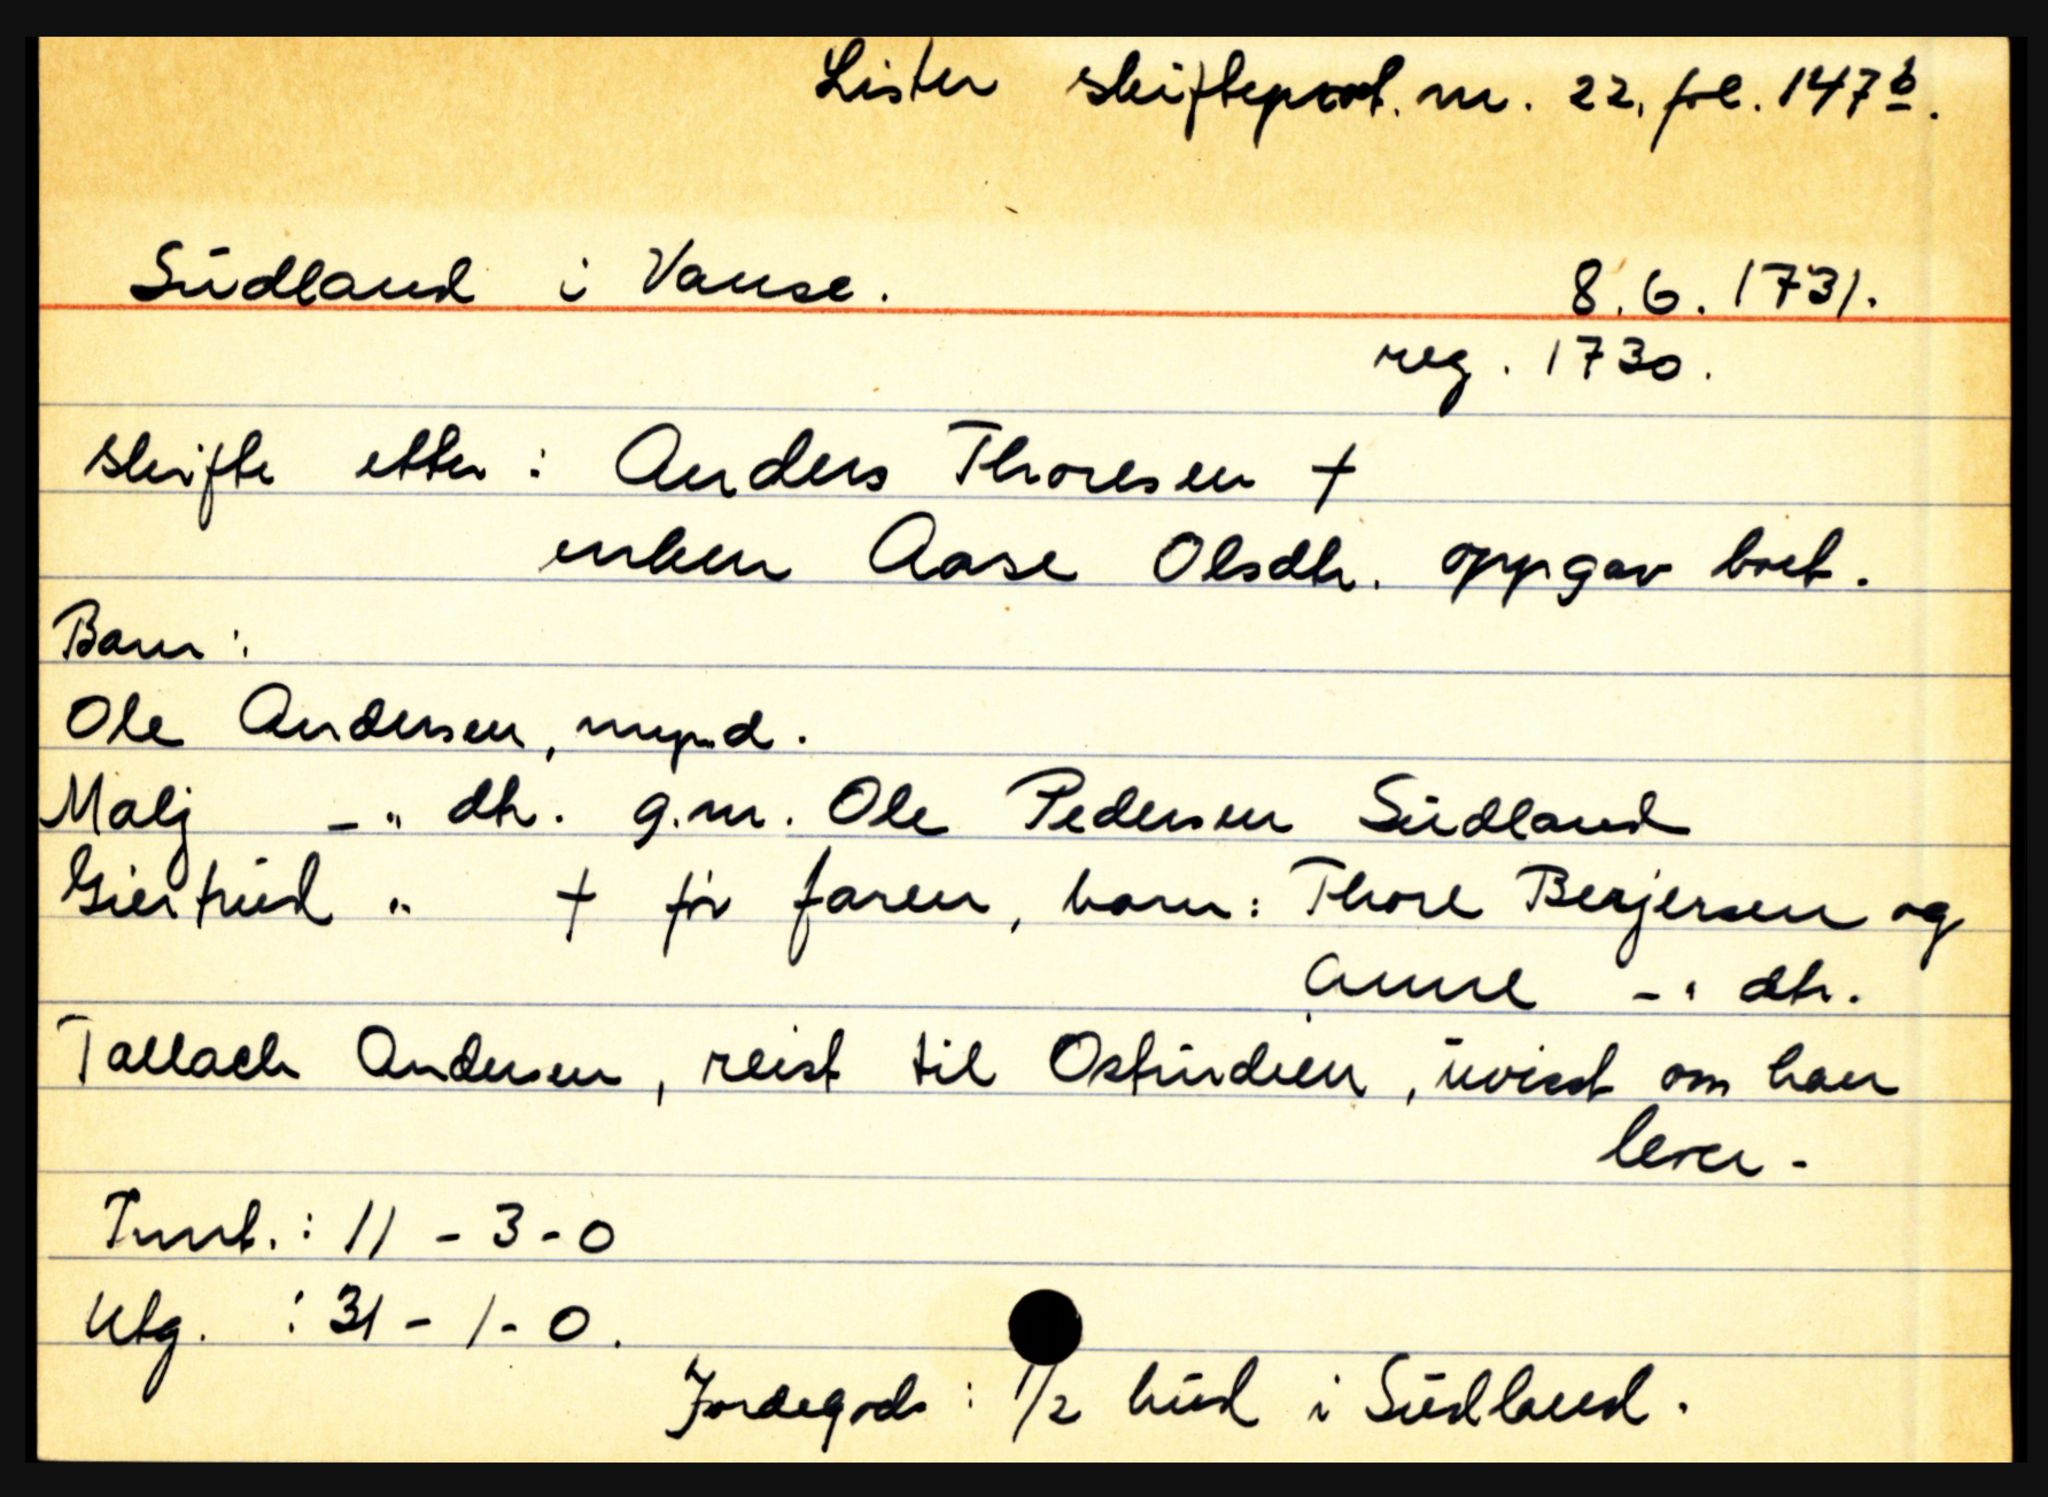 Lister skifteprot. nr. 22, fol. 147 b.
Sūdland i Vanse. 8.6.1731.
reg. 1730.
skifte etter: Anders Thoresen †
enken Aase Olsdtr. oppgav boet.
Barn:
Ole Andersen, mynd.
Malj -"- dtr. g.m. Ole Pedersen Sūdland
Giertrūd " † før faren, barn: Thore Berjersen og
Anne -"- dtr.
Tallach Andersen, reist til Ostindien, ūvisst om han
lever -
Brutt.: 11 - 3 - 0
Utg. : 31 - 1 - 0.
Jordegods: 1/2 hūd i Sūdland.